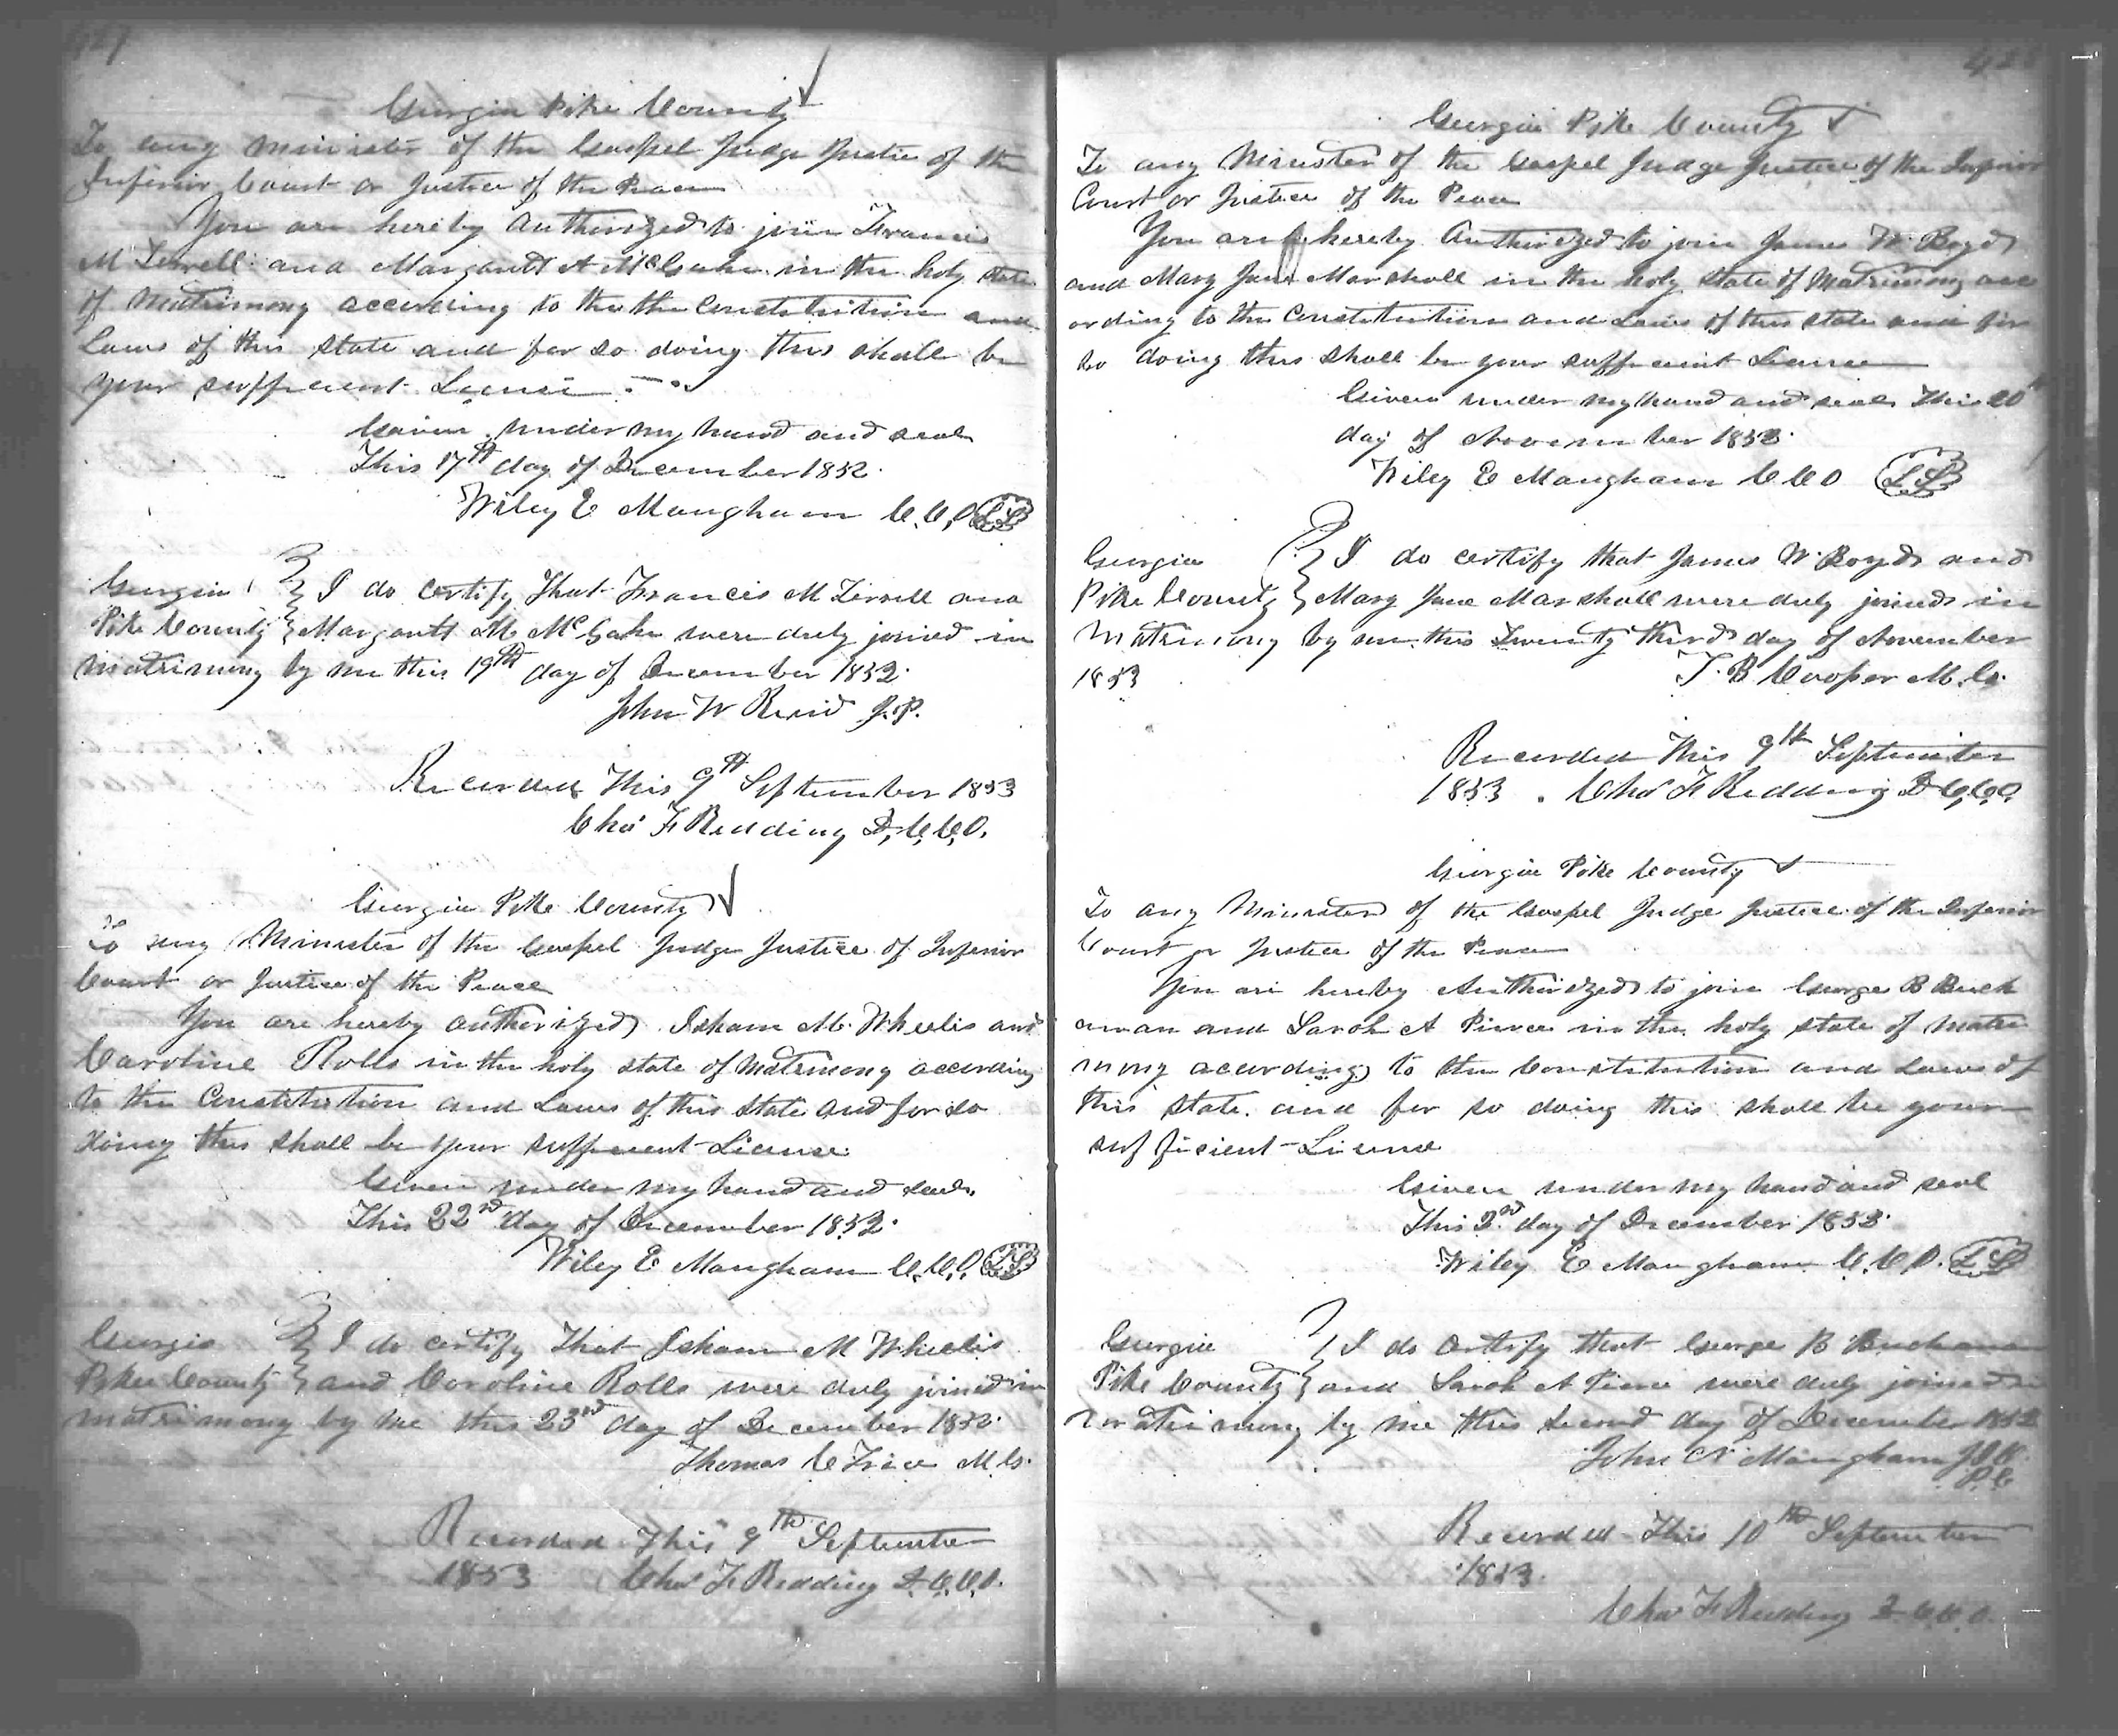 Georgia Pike County
To any minister of the Gospel Judge Justice of the
Inferior Court or Justice of the Peace
You are hereby authorized to join Francis
M Terrell and Margarett A McGahe in the holy state
of Matrimony according to the the Constitution and
Laws of this state and for so doing this shall be
your sufficient License
Given under my hand and seal
This 17th day of December 1852.
Wiley E Mangham C.C.O. LS
Georgia } I do certify That Francis M Terrell and
Pike County } Margarett M McGahe were duly joined in
matrimony by me this 19th day of December 1852.
John W Reid J.P.
Recorded This 9th September 1853
Chas F Redding D.C.C.O.
Georgia Pike County
To any Minister of the Gospel Judge Justice of Inferior
Court or Justice of the Peace
You are hereby authorized Isham M. Wheelis and
Caroline Rolls in the holy state of Matrimony according
to the Constitution and Laws of this state and for so
doing this shall be your sufficient License.
Given under my hand and seal.
This 22nd day of December 1852.
Wiley E Mangham C.C.O. LS
Georgia } I do certify That Isham M Wheelis
Pike County } and Caroline Rolls were duly joined in
matrimony by me this 23rd day of December 1852.
Thomas C Trice M.G.
Recorded This 9th September
1853 Chas F Redding D.C.C.O.
Georgia Pike County
To any Minister of the Gospel Judge Justice of the Inferior
Court or Justice of the Peace
You are hereby Authorized to join James W. Boyd
and Mary Jane Marshall in the holy state of Matrimony acc
ording to the Constitution and Laws of this state and for
so doing this shall be your sufficient License
Given under my hand and seal This 20
day of November 1852.
Wiley E Mangham C C O LS
Georgia } I do certify that James W. Boyd and
Pike County } Mary Jane Marshall were duly joined in
Matrimony by me this Twenty third day of November
1853 T. B Cooper M.G.
Recorded This 9th September
1853. Chas F Redding D C.C.O.
Georgia Pike County
To any Minister of the Gospel Judge Justice of the Inferior
Court or Justice of the Peace
You are hereby Authorized to join George B Buch
anan and Sarah A Pierce in the holy state of Matri
mony according to the Constitution and Laws of
this state. and for so doing this shall be your
sufficient License
Given under my hand and seal
This 2nd day of December 1852.
Wiley E Mangham C.C.O. LS
Georgia } I do certify that George B Buchanan
Pike County } and Sarah A Pierce were duly joined in
matrimony by me this second day of December 1852
John N Mangham J.I.C.
P.C
Recorded This 10th September
1853.
Chas F Redding D C.C.O.